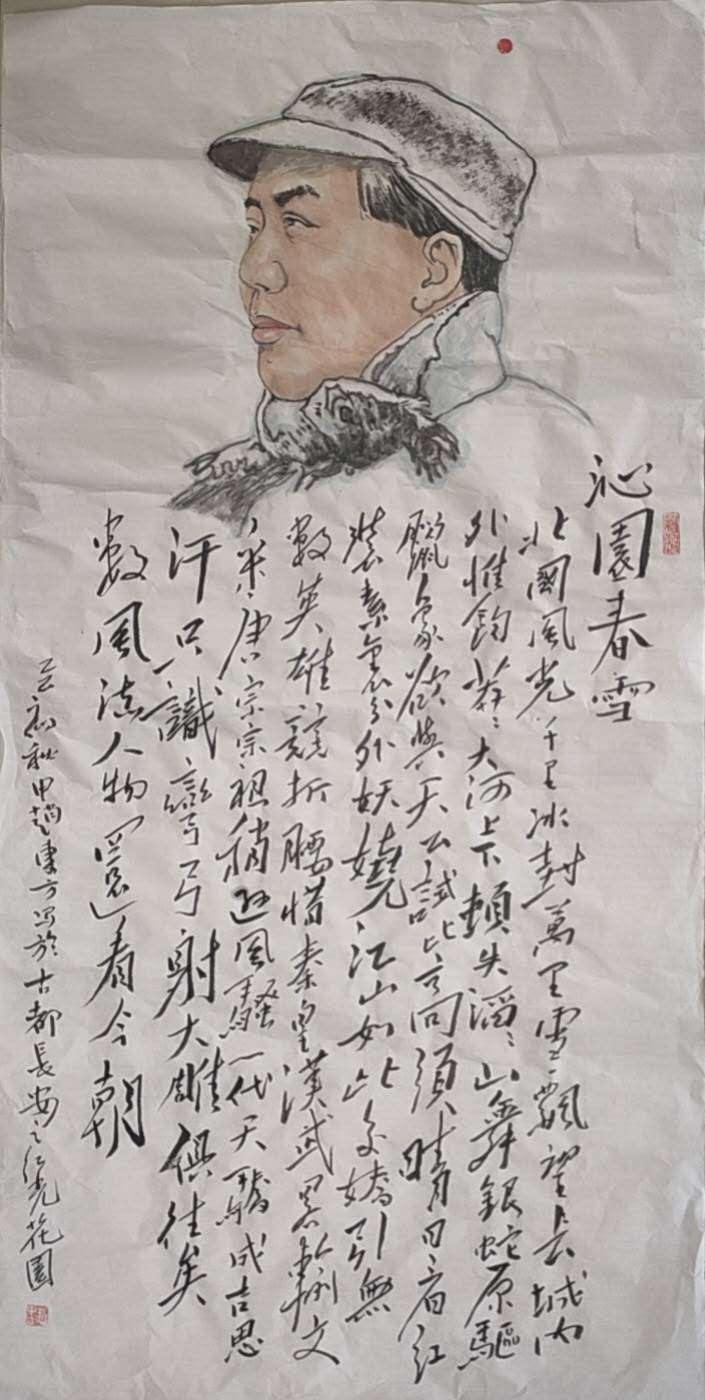 沁園春雪
北國風光千里冰封萬里雪飄望長城內
外惟餘莽ミ大河上下頓失滔ミ山舞銀蛇原驅
臘象欲與天公試比高須晴日看紅
裝素裹分外妖嬈江山如此多嬌引無
數英雄競折腰惜秦皇漢武略輸文
采唐宗宋祖稍遜風騷一代天驕成吉思
汗只識彎弓射大雕俱往矣
數風流人物還看今朝
初秋甲趙東方写於古都長安之紅光花園